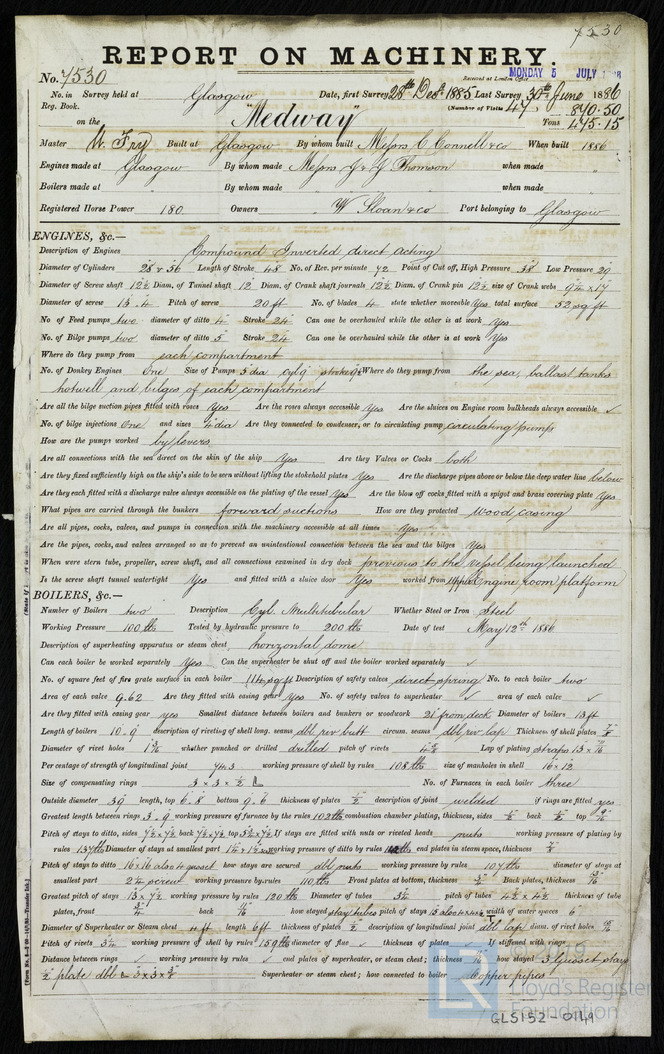 7530
REPORT ON MACHINERY.
No. 7530 Received at London Office MONDAY 5 JULY
No. in Survey held at Glasgow Date, first Survey 28th Decr 1885 Last Survey 30th June 1886
Reg. Book. (Number of Visits 47)
on the "Medway" Tons 870.50 475.15
Master W. Fry Built at Glasgow By whom built Messrs C Connell & Co When built 1886
Engines made at Glasgow By whom made Messrs J & J Thomson when made "
Boilers made at By whom made when made
Registered Horse Power 180 Owners W Sloan & Co Port belonging to Glasgow
ENGINES, &c.—
Description of Engines Compound Inverted direct acting
Diameter of Cylinders 28 & 56 Length of Stroke 48 No. of Rev. per minute 72 Point of Cut off, High Pressure 38 Low Pressure 29
Diameter of Screw shaft 12½ Diam. of Tunnel shaft 12 Diam. of Crank shaft journals 12½ Diam. of Crank pin 12½ size of Crank webs 9¼ x 17
Diameter of screw 13.4 Pitch of screw 20 ft No. of blades 4 state whether moveable Yes total surface 52 sq ft
No of Feed pumps two diameter of ditto 4 Stroke 24 Can one be overhauled while the other is at work Yes
No of Bilge pumps two diameter of ditto 5 Stroke 24 Can one be overhauled while the other is at work Yes
Where do they pump from each compartment
No. of Donkey Engines One Size of Pumps 5 dia cyl 9 stroke 9 Where do they pump from the sea, ballast tanks
hotwell and bilges of each compartment
Are all the bilge suction pipes fitted with roses Yes Are the roses always accessible Yes Are the sluices on Engine room bulkheads always accessible ✓
No. of bilge injections One and sizes 4 dia Are they connected to condenser, or to circulating pump circulating pump
How are the pumps worked by levers
Are all connections with the sea direct on the skin of the ship Yes Are they Valves or Cocks both
Are they fixed sufficiently high on the ship's side to be seen without lifting the stokehold plates Yes Are the discharge pipes above or below the deep water line below
Are they each fitted with a discharge valve always accessible on the plating of the vessel Yes Are the blow off cocks fitted with a spigot and brass covering plate Yes
What pipes are carried through the bunkers forward suctions How are they protected Wood casing
Are all pipes, cocks, valves, and pumps in connection with the machinery accessible at all times Yes
Are the pipes, cocks, and valves arranged so as to prevent an unintentional connection between the sea and the bilges Yes
When were stern tube, propeller, screw shaft, and all connections examined in dry dock previous to the vessel being launched
Is the screw shaft tunnel watertight Yes and fitted with a sluice door Yes worked from Upper Engine room platform
BOILERS, &c.—
Number of Boilers two Description Cyl. Multitubular Whether Steel or Iron Steel
Working Pressure 100 lbs Tested by hydraulic pressure to 200 lbs Date of test May 12th 1886
Description of superheating apparatus or steam chest horizontal dome
Can each boiler be worked separately Yes Can the superheater be shut off and the boiler worked separately ✓
No. of square feet of fire grate surface in each boiler 114 sq ft Description of safety valves direct spring No. to each boiler two
Area of each valve 9.62 Are they fitted with easing gear Yes No. of safety valves to superheater ✓ area of each valve ✓
Are they fitted with easing gear yes Smallest distance between boilers and bunkers or woodwork 21 from deck Diameter of boilers 13 ft
Length of boilers 10-9 description of riveting of shell long. seams dbl riv butt circum. seams dbl riv lap Thickness of shell plates
Diameter of rivet holes whether punched or drilled drilled pitch of rivets Lap of plating straps 13 x
Per centage of strength of longitudinal joint 74.3 working pressure of shell by rules 108 lbs size of manholes in shell 16 x 12
Size of compensating rings 3 x 3 x ½ L No. of Furnaces in each boiler three
Outside diameter 39 length, top 6.8 bottom 9.6 thickness of plates ½ description of joint welded if rings are fitted yes
Greatest length between rings 3.9 working pressure of furnace by the rules 102 lbs combustion chamber plating, thickness, sides back top
Pitch of stays to ditto, sides 7½ x 7½ back 7½ x 7½ top If stays are fitted with nuts or riveted heads nuts working pressure of plating by
rules 137 lbs Diameter of stays at smallest part working pressure of ditto by rules end plates in steam space, thickness
Pitch of stays to ditto 16 x 16 also 4 gusset how stays are secured dbl nuts working pressure by rules 107 lbs diameter of stays at
smallest part 2¼ screw working pressure by rules 110 lbs Front plates at bottom, thickness Back plates, thickness
Greatest pitch of stays 13 x 7½ working pressure by rules 120 lbs Diameter of tubes 3¼ pitch of tubes 4½ x 4½ thickness of tube
plates, front back how stayed stay tubes pitch of stays width of water spaces 6
Diameter of Superheater or Steam chest 4 ft length 6 ft thickness of plates ½ description of longitudinal joint dbl lap diam. of rivet holes
Pitch of rivets 3¼ working pressure of shell by rules 159 lbs diameter of flue ✓ thickness of plates ✓ If stiffened with rings
Distance between rings ✓ working pressure by rules ✓ end plates of superheater, or steam chest; thickness how stayed 3 Gusset stays
½ plate dbl L 3 x 3 x Superheater or steam chest; how connected to boiler Copper pipes
LR
Lloyd's Register
Foundation
GLS152-0149